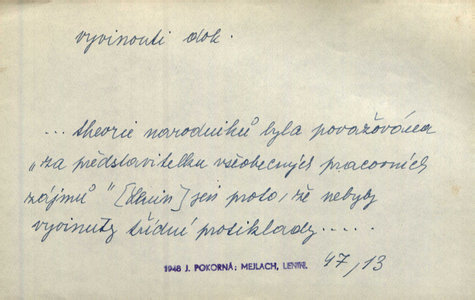 vyvinouti dok.
... theorie narodniků byla považována
„za představitelku všeobecných pracovních
zájmů" [Lenin] jen proto, že nebyly
vyvinuty třídní protiklady.....
1948 J. POKORNÁ: MEJLACH, LENIN. 47,13